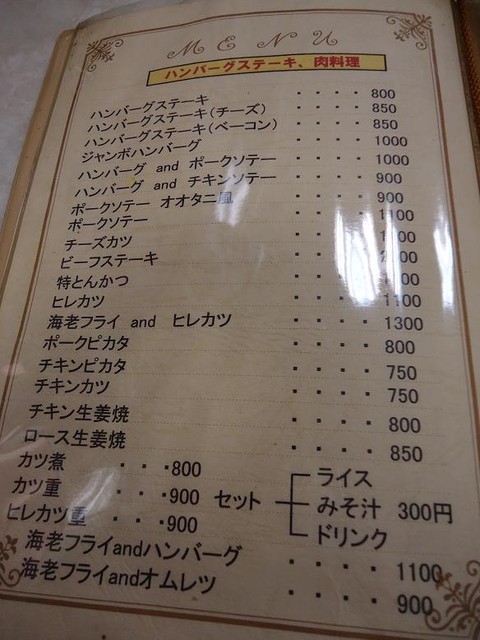 MENU
ハンバーグステーキ、肉料理
ハンバーグステーキ ・・・・ 800
ハンバーグステーキ(チーズ) ・・・・ 850
ハンバーグステーキ(ベーコン) ・・・・ 850
ジャンボハンバーグ ・・・・ 1000
ハンバーグ and ポークソテー ・・・・ 1000
ハンバーグ and チキンソテー ・・・・ 900
ポークソテー オオタニ風 ・・・・ 900
ポークソテー ・・・・ 1100
チーズカツ ・・・・
ビーフステーキ ・・・・
特とんかつ ・・・・
ヒレカツ ・・・・ 1100
海老フライ and ヒレカツ ・・・・ 1300
ポークピカタ ・・・・ 800
チキンピカタ ・・・・ 750
チキンカツ ・・・・ 750
チキン生姜焼 ・・・・ 800
ロース生姜焼 ・・・・ 850
カツ煮 ・・・800
カツ重 ・・・900
ヒレカツ重 ・・・900
セット ライス
みそ汁 300円
ドリンク
海老フライandハンバーグ ・・・・ 1100
海老フライandオムレツ ・・・・ 900